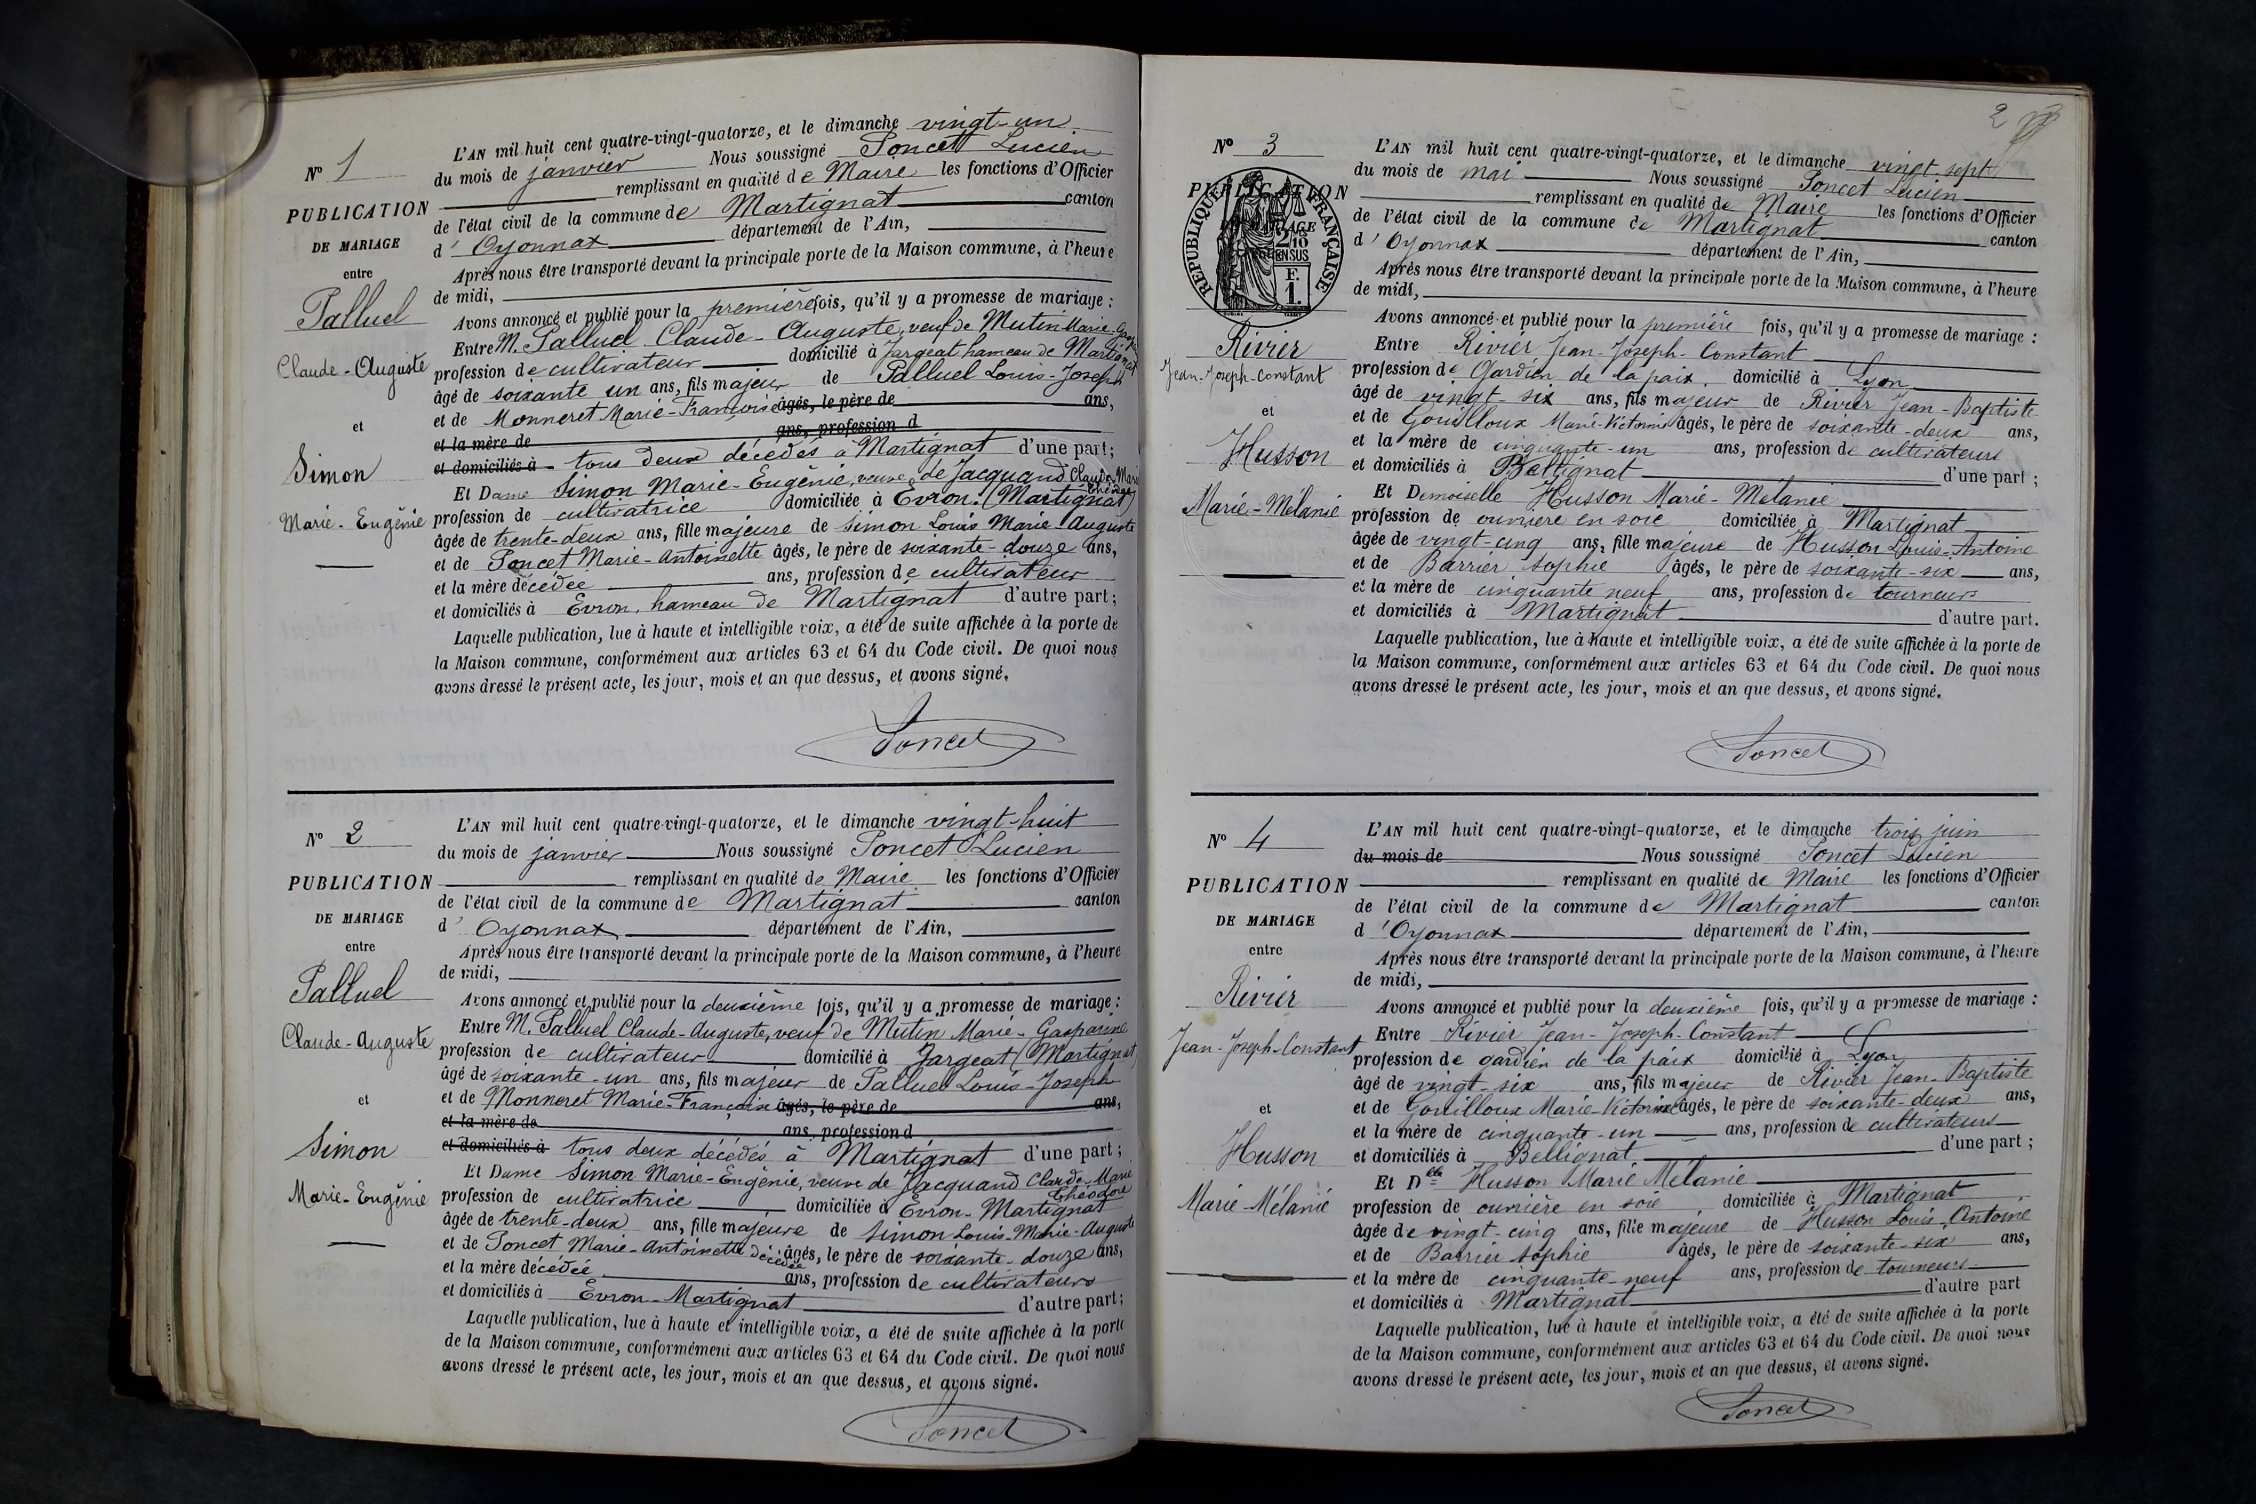 N° 1
PUBLICATION
DE MARIAGE
entre
Palluel
Claude-Auguste
et
Simon
Marie-Eugénie
L'AN mil huit cent quatre-vingt-quatorze, et le dimanche vingt-un
du mois de janvier Nous soussigné Poncet Lucien
remplissant en qualité de Maire les fonctions d'Officier
de l'état civil de la commune de Martignat canton
d'Oyonnax département de l'Ain,
Après nous être transporté devant la principale porte de la Maison commune, à l'heure
de midi,
Avons annoncé et publié pour la première fois, qu'il y a promesse de mariage :
Entre M. Palluel Claude-Auguste, veuf de Mutin Marie-
profession de cultivateur domicilié à Jargeat hameau de Martignat
âgé de soixante un ans, fils majeur de Palluel Louis-Joseph
et de Monneret Marie-Françoise âgés, le père de ans,
et la mère de ans, profession d
et domiciliés à tous deux décédés à Martignat d'une part;
Et Dame Simon Marie-Eugénie, veuve de Jacquand Claude-Marie
Théodore
profession de cultivatrice domiciliée à Evron. (Martignat)
âgée de trente-deux ans, fille majeure de Simon Louis Marie Auguste
et de Poncet Marie-Antoinette âgés, le père de soixante-douze ans,
et la mère décédée ans, profession de cultivateur
et domiciliés à Evron, hameau de Martignat d'autre part;
Laquelle publication, lue à haute et intelligible voix, a été de suite affichée à la porte de
la Maison commune, conformément aux articles 63 et 64 du Code civil. De quoi nous
avons dressé le présent acte, les jour, mois et an que dessus, et avons signé.
Poncet
N° 2
PUBLICATION
DE MARIAGE
entre
Palluel
Claude-Auguste
et
Simon
Marie-Eugénie
L'AN mil huit cent quatre-vingt-quatorze, et le dimanche vingt-huit
du mois de janvier Nous soussigné Poncet Lucien
remplissant en qualité de Maire les fonctions d'Officier
de l'état civil de la commune de Martignat canton
d'Oyonnax département de l'Ain,
Après nous être transporté devant la principale porte de la Maison commune, à l'heure
de midi,
Avons annoncé et publié pour la deuxième fois, qu'il y a promesse de mariage :
Entre M. Palluel Claude-Auguste, veuf de Mutin Marie-Gasparine
profession de cultivateur domicilié à Jargeat (Martignat)
âgé de soixante-un ans, fils majeur de Palluel Louis-Joseph
et de Monneret Marie-Françoise âgés, le père de ans,
et la mère de ans, profession d
et domiciliés à tous deux décédés à Martignat d'une part;
Et Dame Simon Marie-Eugénie, veuve de Jacquand Claude-Marie
Théodore
profession de cultivatrice domiciliée à Evron-Martignat
âgée de trente-deux ans, fille majeure de Simon Louis-Marie-Auguste
et de Poncet Marie-Antoinette décédée âgés, le père de soixante-douze ans,
et la mère décédée ans, profession de cultivateurs
et domiciliés à Evron-Martignat d'autre part;
Laquelle publication, lue à haute et intelligible voix, a été de suite affichée à la porte
de la Maison commune, conformément aux articles 63 et 64 du Code civil. De quoi nous
avons dressé le présent acte, les jour, mois et an que dessus, et avons signé.
Poncet
2
N° 3
PUBLICATION
DE MARIAGE
RÉPUBLIQUE FRANÇAISE
2/10
EN SUS
F.
1.
Rivier
Jean-Joseph-Constant
et
Husson
Marie-Mélanie
L'AN mil huit cent quatre-vingt-quatorze, et le dimanche vingt-sept
du mois de mai Nous soussigné Poncet Lucien
remplissant en qualité de Maire les fonctions d'Officier
de l'état civil de la commune de Martignat canton
d'Oyonnax département de l'Ain,
Après nous être transporté devant la principale porte de la Maison commune, à l'heure
de midi,
Avons annoncé et publié pour la première fois, qu'il y a promesse de mariage :
Entre Rivier Jean-Joseph-Constant
profession de Gardien de la paix. domicilié à Lyon
âgé de vingt-six ans, fils majeur de Rivier Jean-Baptiste
et de Gouilloux Marie-Victorine âgés, le père de soixante-deux ans,
et la mère de cinquante-un ans, profession de cultivateurs
et domiciliés à Bellignat d'une part;
Et Demoiselle Husson Marie-Mélanie
profession de ouvrière en soie domiciliée à Martignat
âgée de vingt-cinq ans, fille majeure de Husson Louis-Antoine
et de Barrier Sophie âgés, le père de soixante-six ans,
et la mère de cinquante neuf ans, profession de tourneurs
et domiciliés à Martignat d'autre part.
Laquelle publication, lue à haute et intelligible voix, a été de suite affichée à la porte de
la Maison commune, conformément aux articles 63 et 64 du Code civil. De quoi nous
avons dressé le présent acte, les jour, mois et an que dessus, et avons signé.
Poncet
N° 4
PUBLICATION
DE MARIAGE
entre
Rivier
Jean-Joseph-Constant
et
Husson
Marie-Mélanie
L'AN mil huit cent quatre-vingt-quatorze, et le dimanche trois juin
du mois de Nous soussigné Poncet Lucien
remplissant en qualité de Maire les fonctions d'Officier
de l'état civil de la commune de Martignat canton
d'Oyonnax département de l'Ain,
Après nous être transporté devant la principale porte de la Maison commune, à l'heure
de midi,
Avons annoncé et publié pour la deuxième fois, qu'il y a promesse de mariage :
Entre Rivier Jean-Joseph-Constant
profession de gardien de la paix domicilié à Lyon
âgé de vingt-six ans, fils majeur de Rivier Jean-Baptiste
et de Gouilloux Marie-Victorine âgés, le père de soixante-deux ans,
et la mère de cinquante-un ans, profession de cultivateurs
et domiciliés à Bellignat d'une part;
Et Delle Husson Marie Mélanie
profession de ouvrière en soie domiciliée à Martignat
âgée de vingt-cinq ans, fille majeure de Husson Louis-Antoine
et de Barrier Sophie âgés, le père de soixante-six ans,
et la mère de cinquante-neuf ans, profession de tourneurs
et domiciliés à Martignat d'autre part
Laquelle publication, lue à haute et intelligible voix, a été de suite affichée à la porte
de la Maison commune, conformément aux articles 63 et 64 du Code civil. De quoi nous
avons dressé le présent acte, les jour, mois et an que dessus, et avons signé.
Poncet